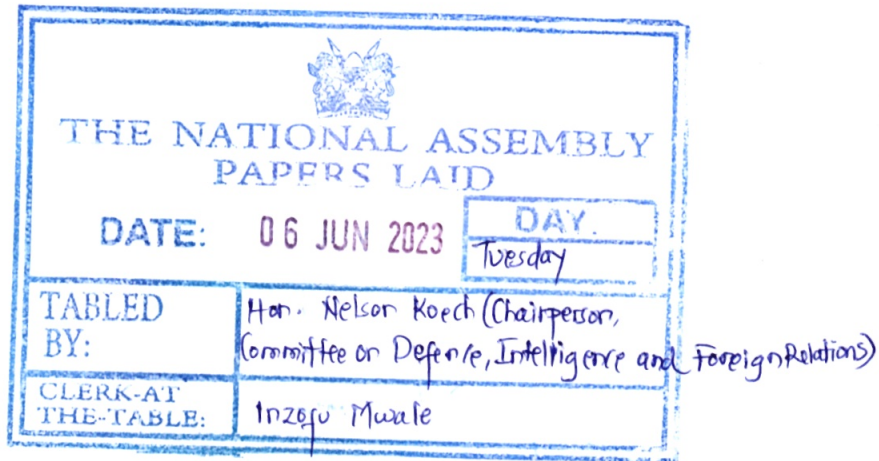 THE NATIONAL ASSEMBLY
PAPERS LAID
DATE: 06 JUN 2023
DAY.
Tuesday
TABLED BY:
Hon. Nelson Koech (Chairperson,
Committee on Defence, Intelligence and Foreign Relations)
CLERK-AT
THE-TABLE:
Inzofu Mwale